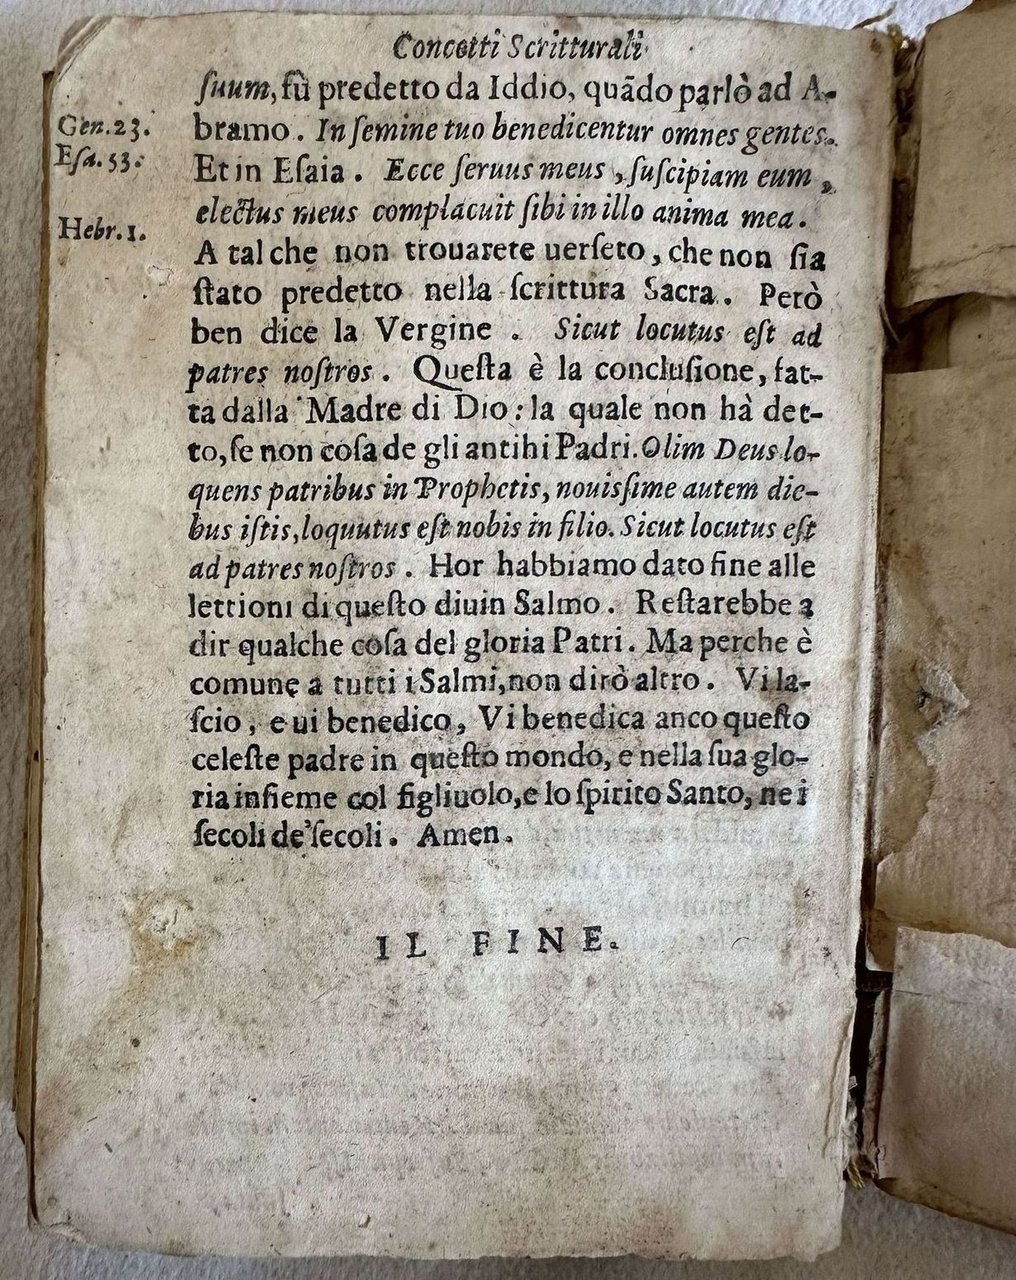 Concetti Scritturali
ſuum, fù predetto da Iddio, quãdo parlò ad A-
Gen.23. bramo. In ſemine tuo benedicentur omnes gentes.
Eſa. 53. Et in Eſaia. Ecce ſeruus meus, ſuſcipiam eum,
electus meus complacuit ſibi in illo anima mea.
Hebr.1. A tal che non trouarete uerſeto, che non ſia
ſtato predetto nella ſcrittura Sacra. Però
ben dice la Vergine. Sicut locutus eſt ad
patres noſtros. Queſta è la concluſione, fat-
ta dalla Madre di Dio: la quale non hà det-
to, ſe non coſa de gli antihi Padri. Olim Deus lo-
quens patribus in Prophetis, nouiſſime autem die-
bus iſtis, loquutus eſt nobis in filio. Sicut locutus eſt
ad patres noſtros. Hor habbiamo dato fine alle
lettioni di queſto diuin Salmo. Reſtarebbe a
dir qualche coſa del gloria Patri. Ma perche è
comune a tutti i Salmi, non dirò altro. Vi la-
ſcio, e ui benedico, Vi benedica anco queſto
celeſte padre in queſto mondo, e nella ſua glo-
ria inſieme col figliuolo, e lo ſpirito Santo, ne i
ſecoli de'ſecoli. Amen.
IL FINE.